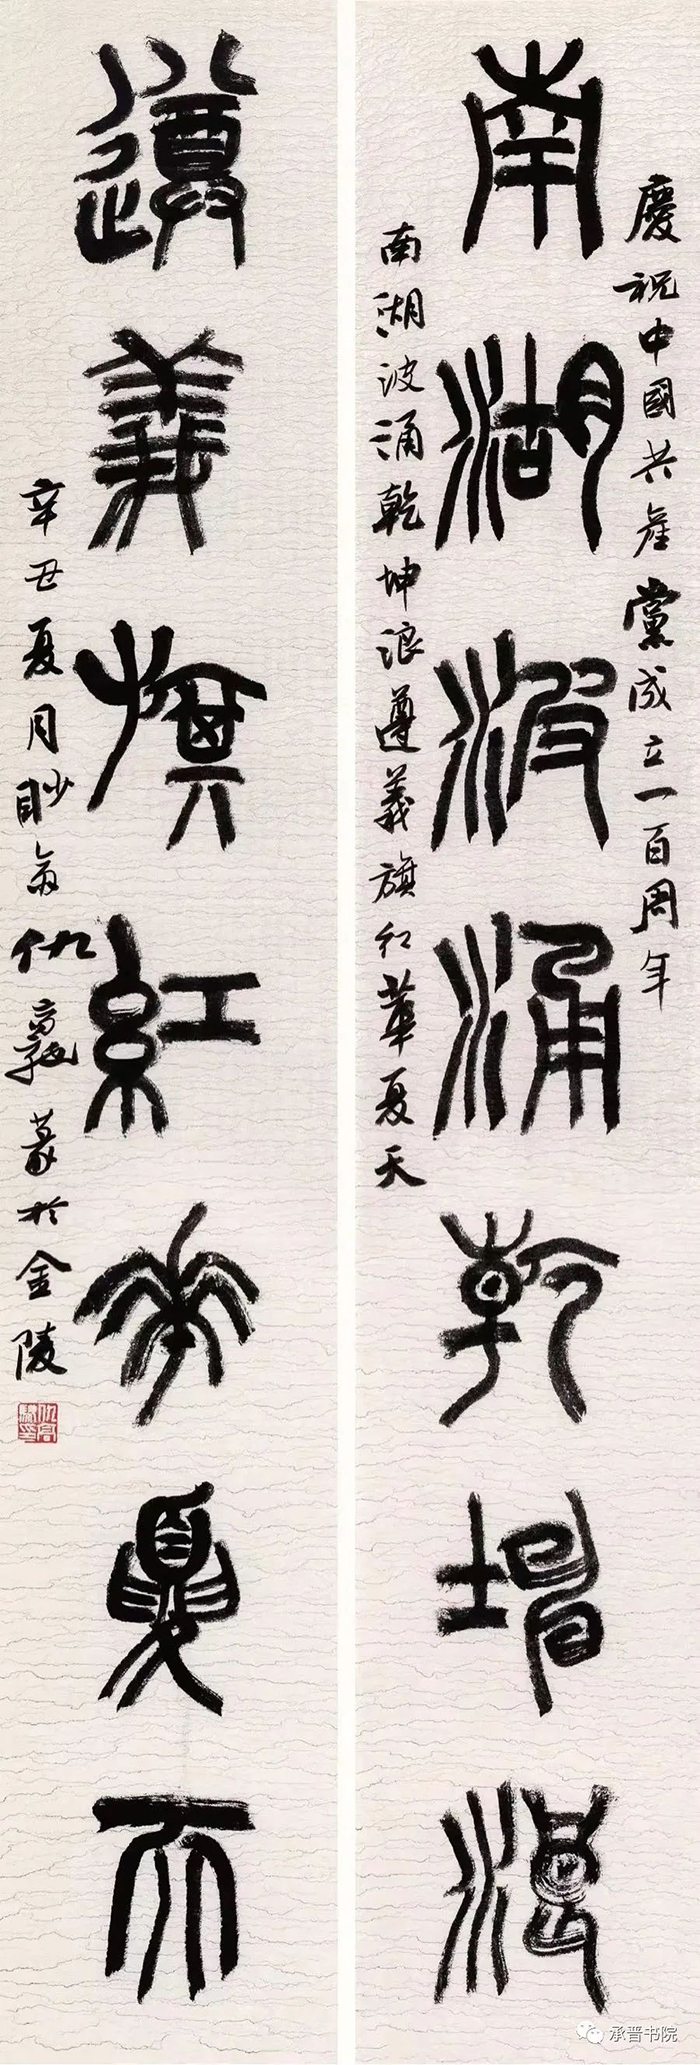 慶祝中國共產黨成立一百周年
南湖波涌乾坤浪
南湖波涌乾坤浪遵義旗紅華夏天
遵義旗紅華夏天
辛丑夏月眇仇篆於金陵
承晋书院